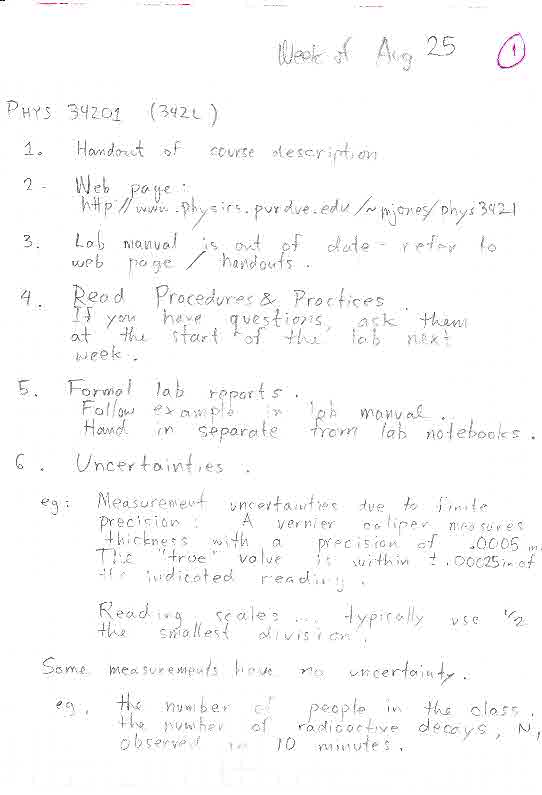 Week of Aug 25 1
PHYS 34201 (342L)
1. Handout of course description
2. Web page:
http://www.physics.purdue.edu/~mjones/phys342l
3. Lab manual is out of date - refer to
web page / handouts.
4. Read Procedures & Practices
If you have questions, ask them
at the start of the lab next
week.
5. Formal lab reports.
Follow example in lab manual.
Hand in separate from lab notebooks.
6. Uncertainties.
eg: Measurement uncertainties due to finite
precision: A vernier caliper measures
thickness with a precision of .0005 in.
The "true" value is within ±.00025 in of
the indicated reading.
Reading scales... typically use 1/2
the smallest division.
Some measurements have no uncertainty.
eg. the number of people in the class.
the number of radioactive decays, N,
observed in 10 minutes.